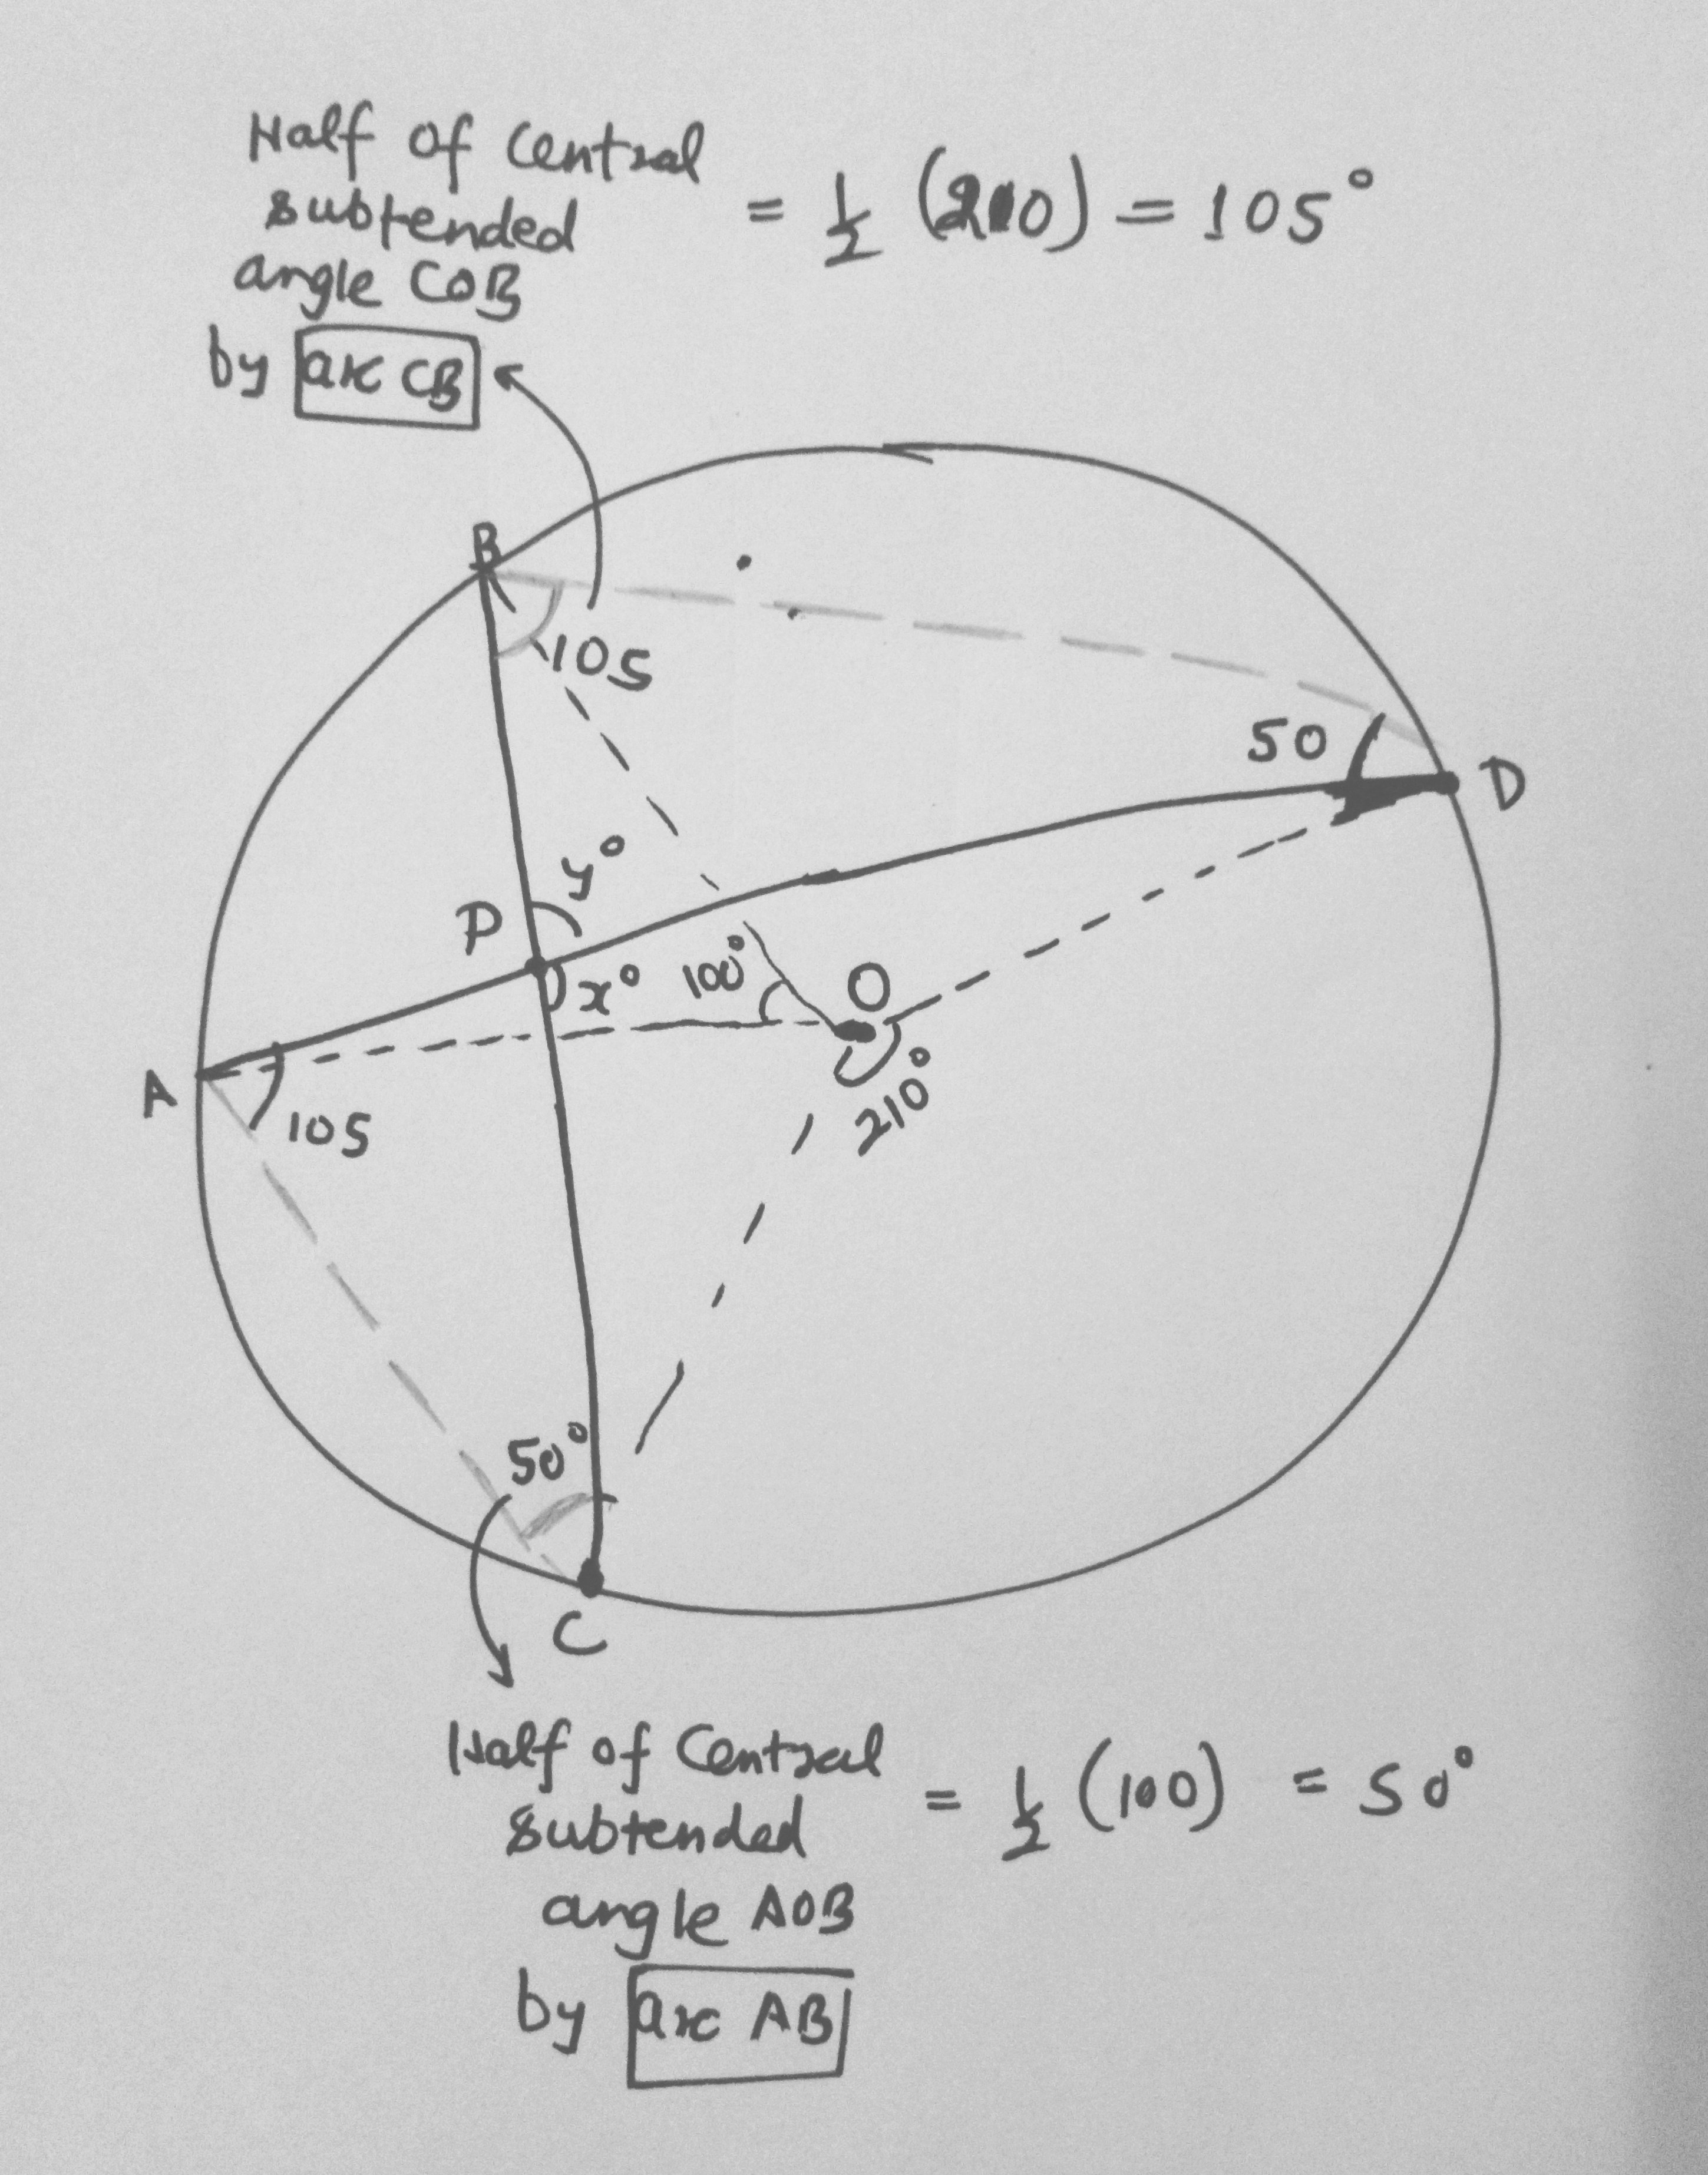 Half of Central
subtended
angle COB
by arc CB
= 1/2 (210) = 105°
B
105
50
D
y°
P
x°
100°
O
210°
A
105
50°
C
Half of Central
subtended
angle AOB
by arc AB
= 1/2 (100) = 50°